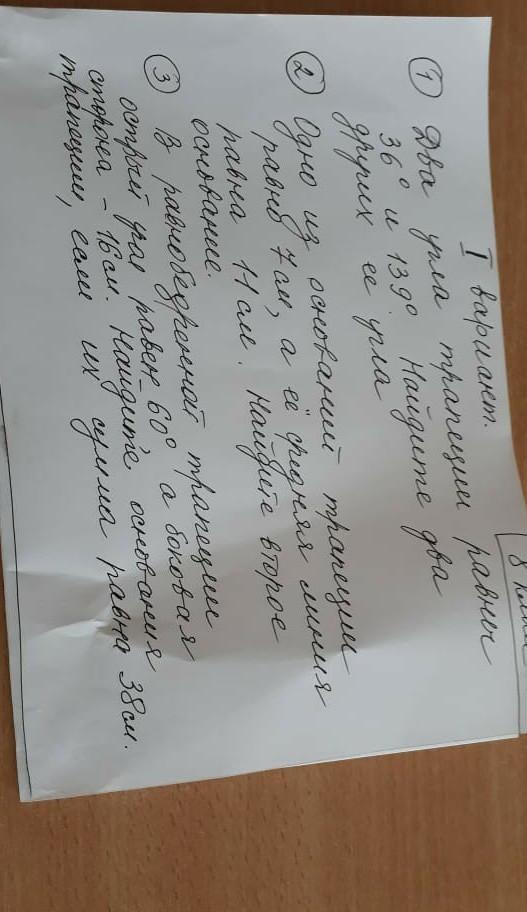 8 класс
I вариант.
① Два угла трапеции равны
36° и 139°. Найдите два
других ее угла
② Одно из оснований трапеции
равно 7 см, а её средняя линия
равна 11 см. Найдите второе
основание.
③ В равнобедренной трапеции
острый угол равен 60° а боковая
сторона – 16 см. Найдите основания
трапеции, если их сумма равна 38 см.